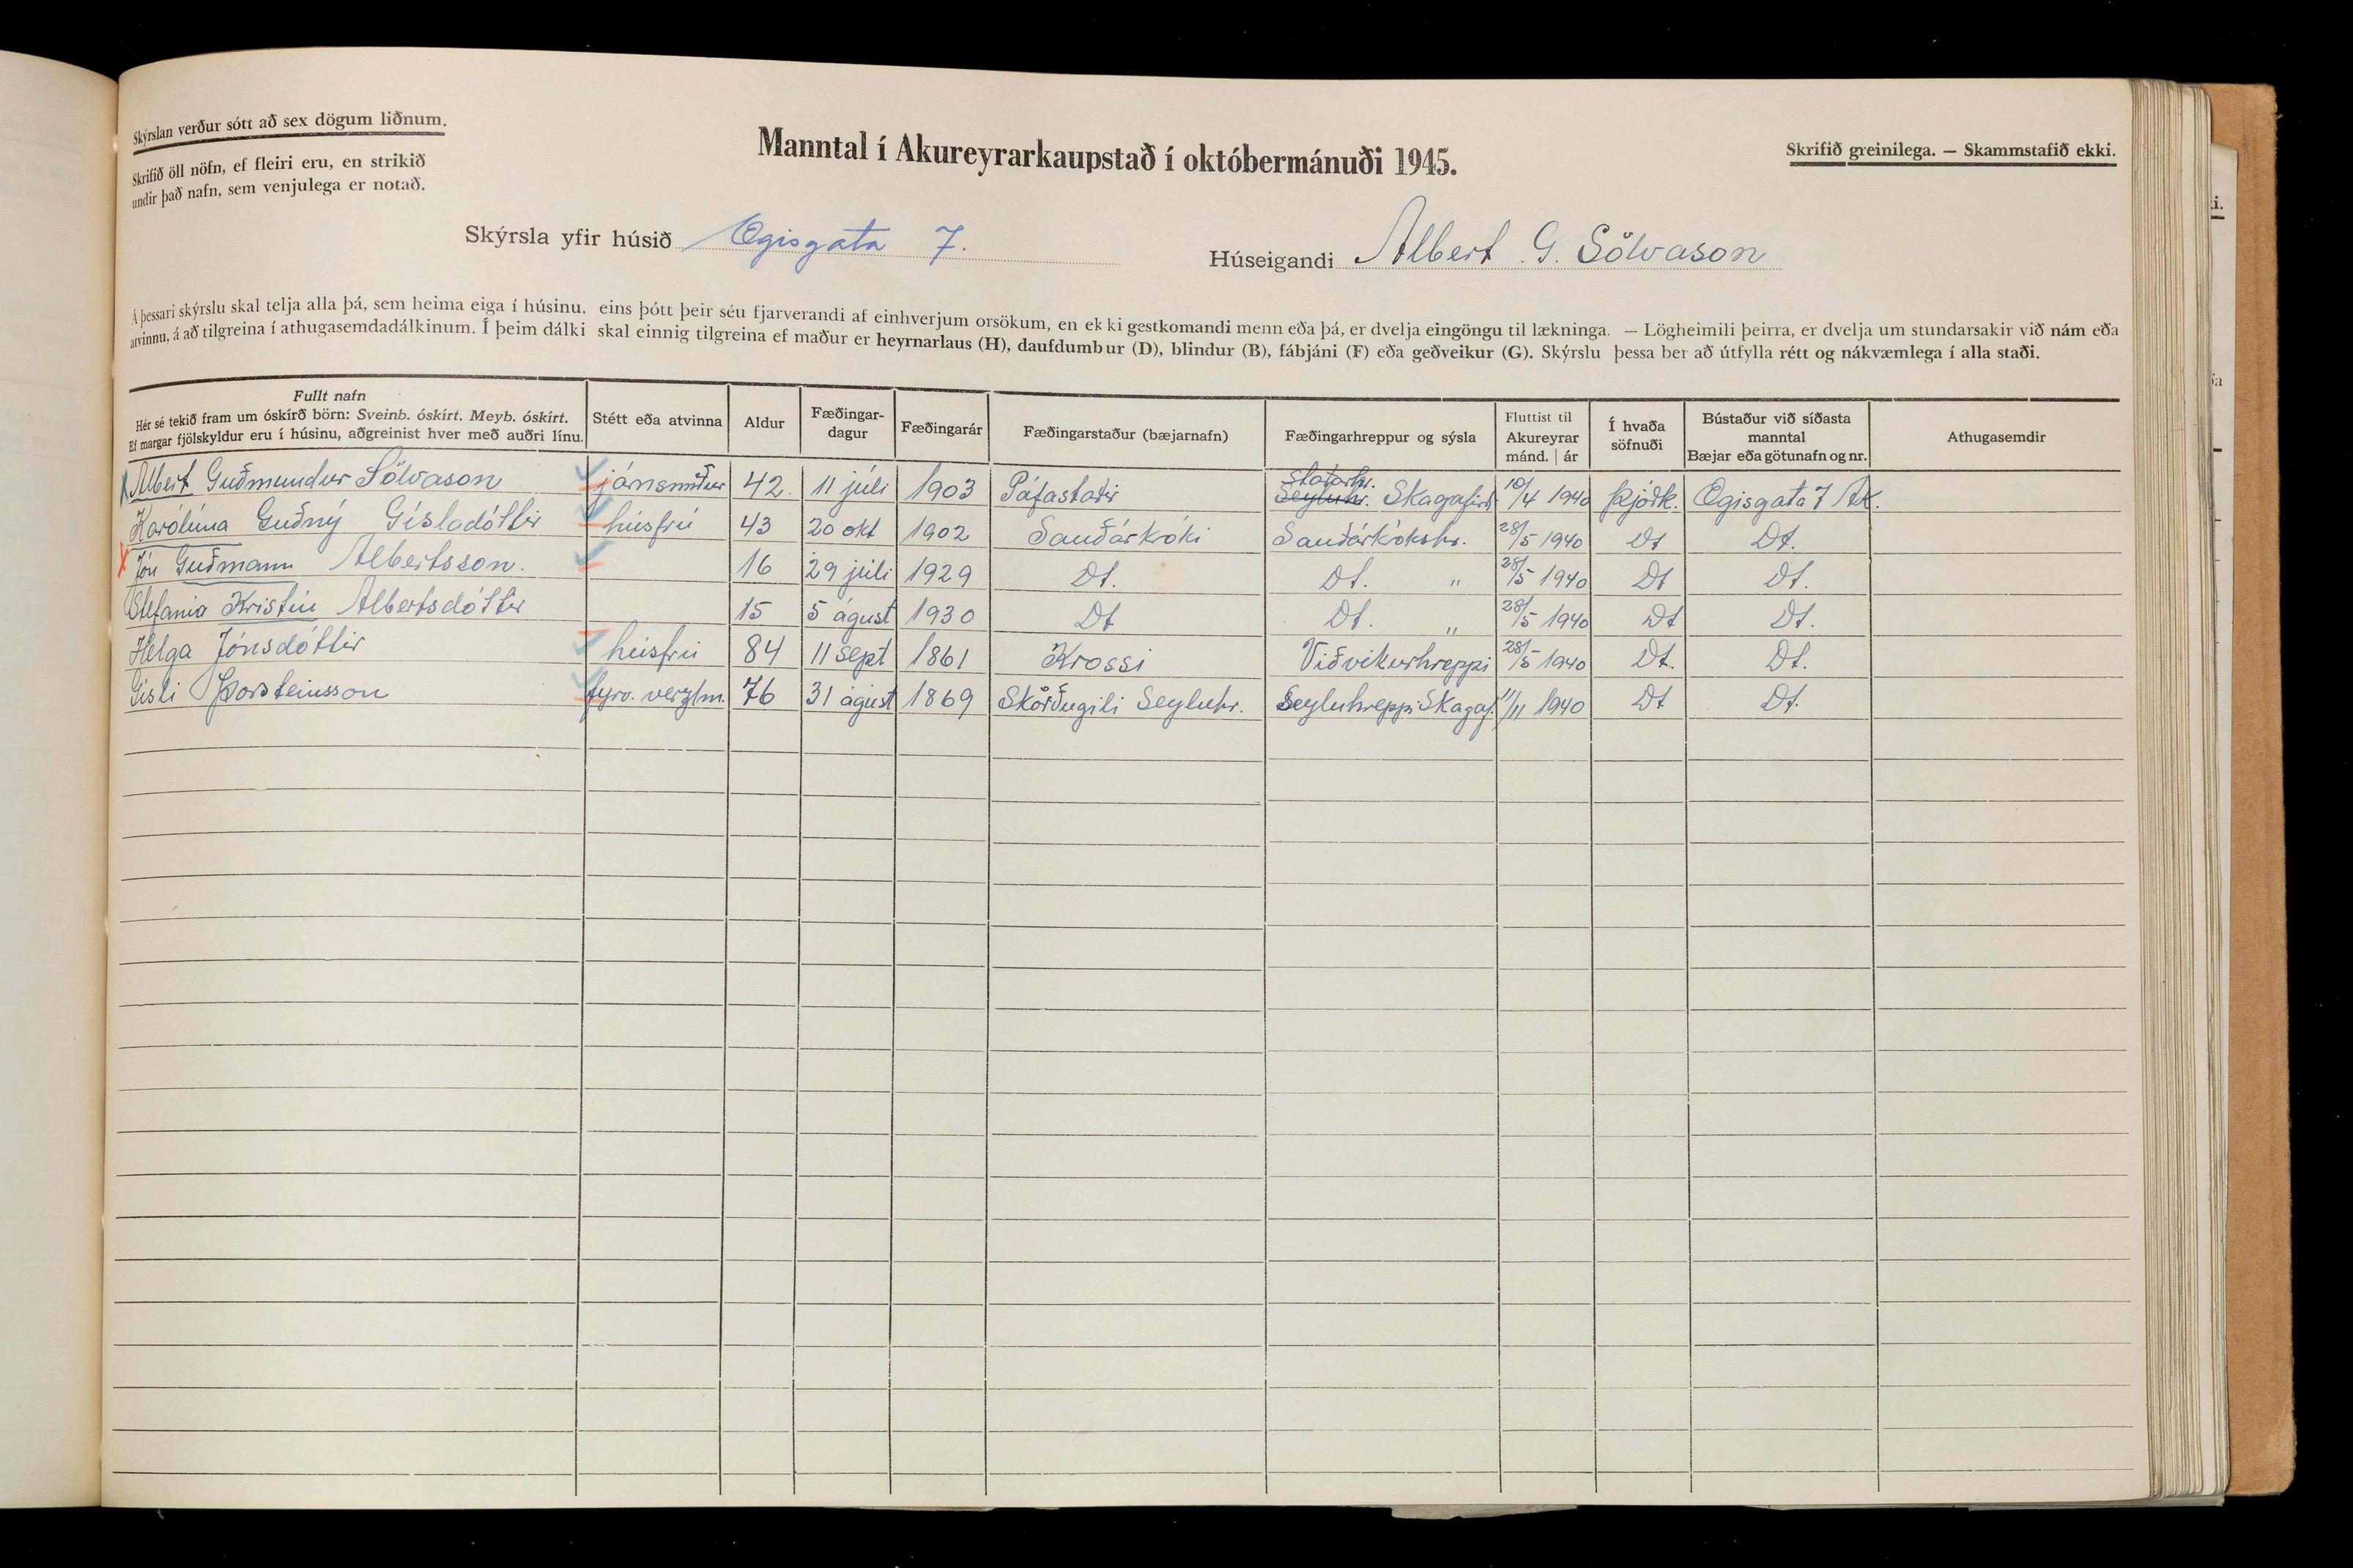 Skýrslan verður sótt að sex dögum liðnum.
Skrifið öll nöfn, ef fleiri eru, en strikið
undir það nafn, sem venjulega er notað.
Manntal í Akureyrarkaupstað í októbermánuði 1945.
Skrifið greinilega. — Skammstafið ekki.
Skýrsla yfir húsið Ægisgata 7.
Húseigandi Albert G. Sölvason
Á þessari skýrslu skal telja alla þá, sem heima eiga í húsinu, eins þótt þeir séu fjarverandi af einhverjum orsökum, en ekki gestkomandi menn eða þá, er dvelja eingöngu til lækninga. — Lögheimili þeirra, er dvelja um stundarsakir við nám eða
atvinnu, á að tilgreina í athugasemdadálkinum. Í þeim dálki skal einnig tilgreina ef maður er heyrnarlaus (H), daufdumbur (D), blindur (B), fábjáni (F) eða geðveikur (G). Skýrslu þessa ber að útfylla rétt og nákvæmlega í alla staði.
Fullt nafn
Hér sé tekið fram um óskírð börn: Sveinb. óskírt. Meyb. óskírt.
Ef margar fjölskyldur eru í húsinu, aðgreinist hver með auðri línu.
Stétt eða atvinna
Aldur
Fæðingar-
dagur
Fæðingarár
Fæðingarstaður (bæjarnafn)
Fæðingarhreppur og sýsla
Fluttist til
Akureyrar
mánd. | ár
Í hvaða
söfnuði
Bústaður við síðasta
manntal
Bæjar eða götunafn og nr.
Athugasemdir
Staðarhr.
Albert Guðmundur Sölvason járnsmiður 42 11 júli 1903 Páfastaðir Seyluhr. Skagafird. 10/4 1940 þjóðk. Ægisgata 7 Ak.
Karólína Guðný Gísladóttir húsfrú 43 20 okt 1902 Sauðárkóki Sauðárkókshr. 28/5 1940 Dt Dt.
Jón Guðmann Albertsson. 16 29 júli 1929 Dt. Dt. " 28/5 1940 Dt Dt.
Stefania Kristín Albertsdóttir 15 5 águst 1930 Dt Dt. " 28/5 1940 Dt Dt.
Helga Jónsdóttir húsfrú 84 11 sept 1861 Krossi Viðvikurhreppi 28/5 1940 Dt. Dt.
Gísli Þorsteinsson fyrv. verzlm. 76 31 águst 1869 Skörðugili Seyluhr. Seyluhreppi Skagaf. 11/11 1940 Dt Dt.